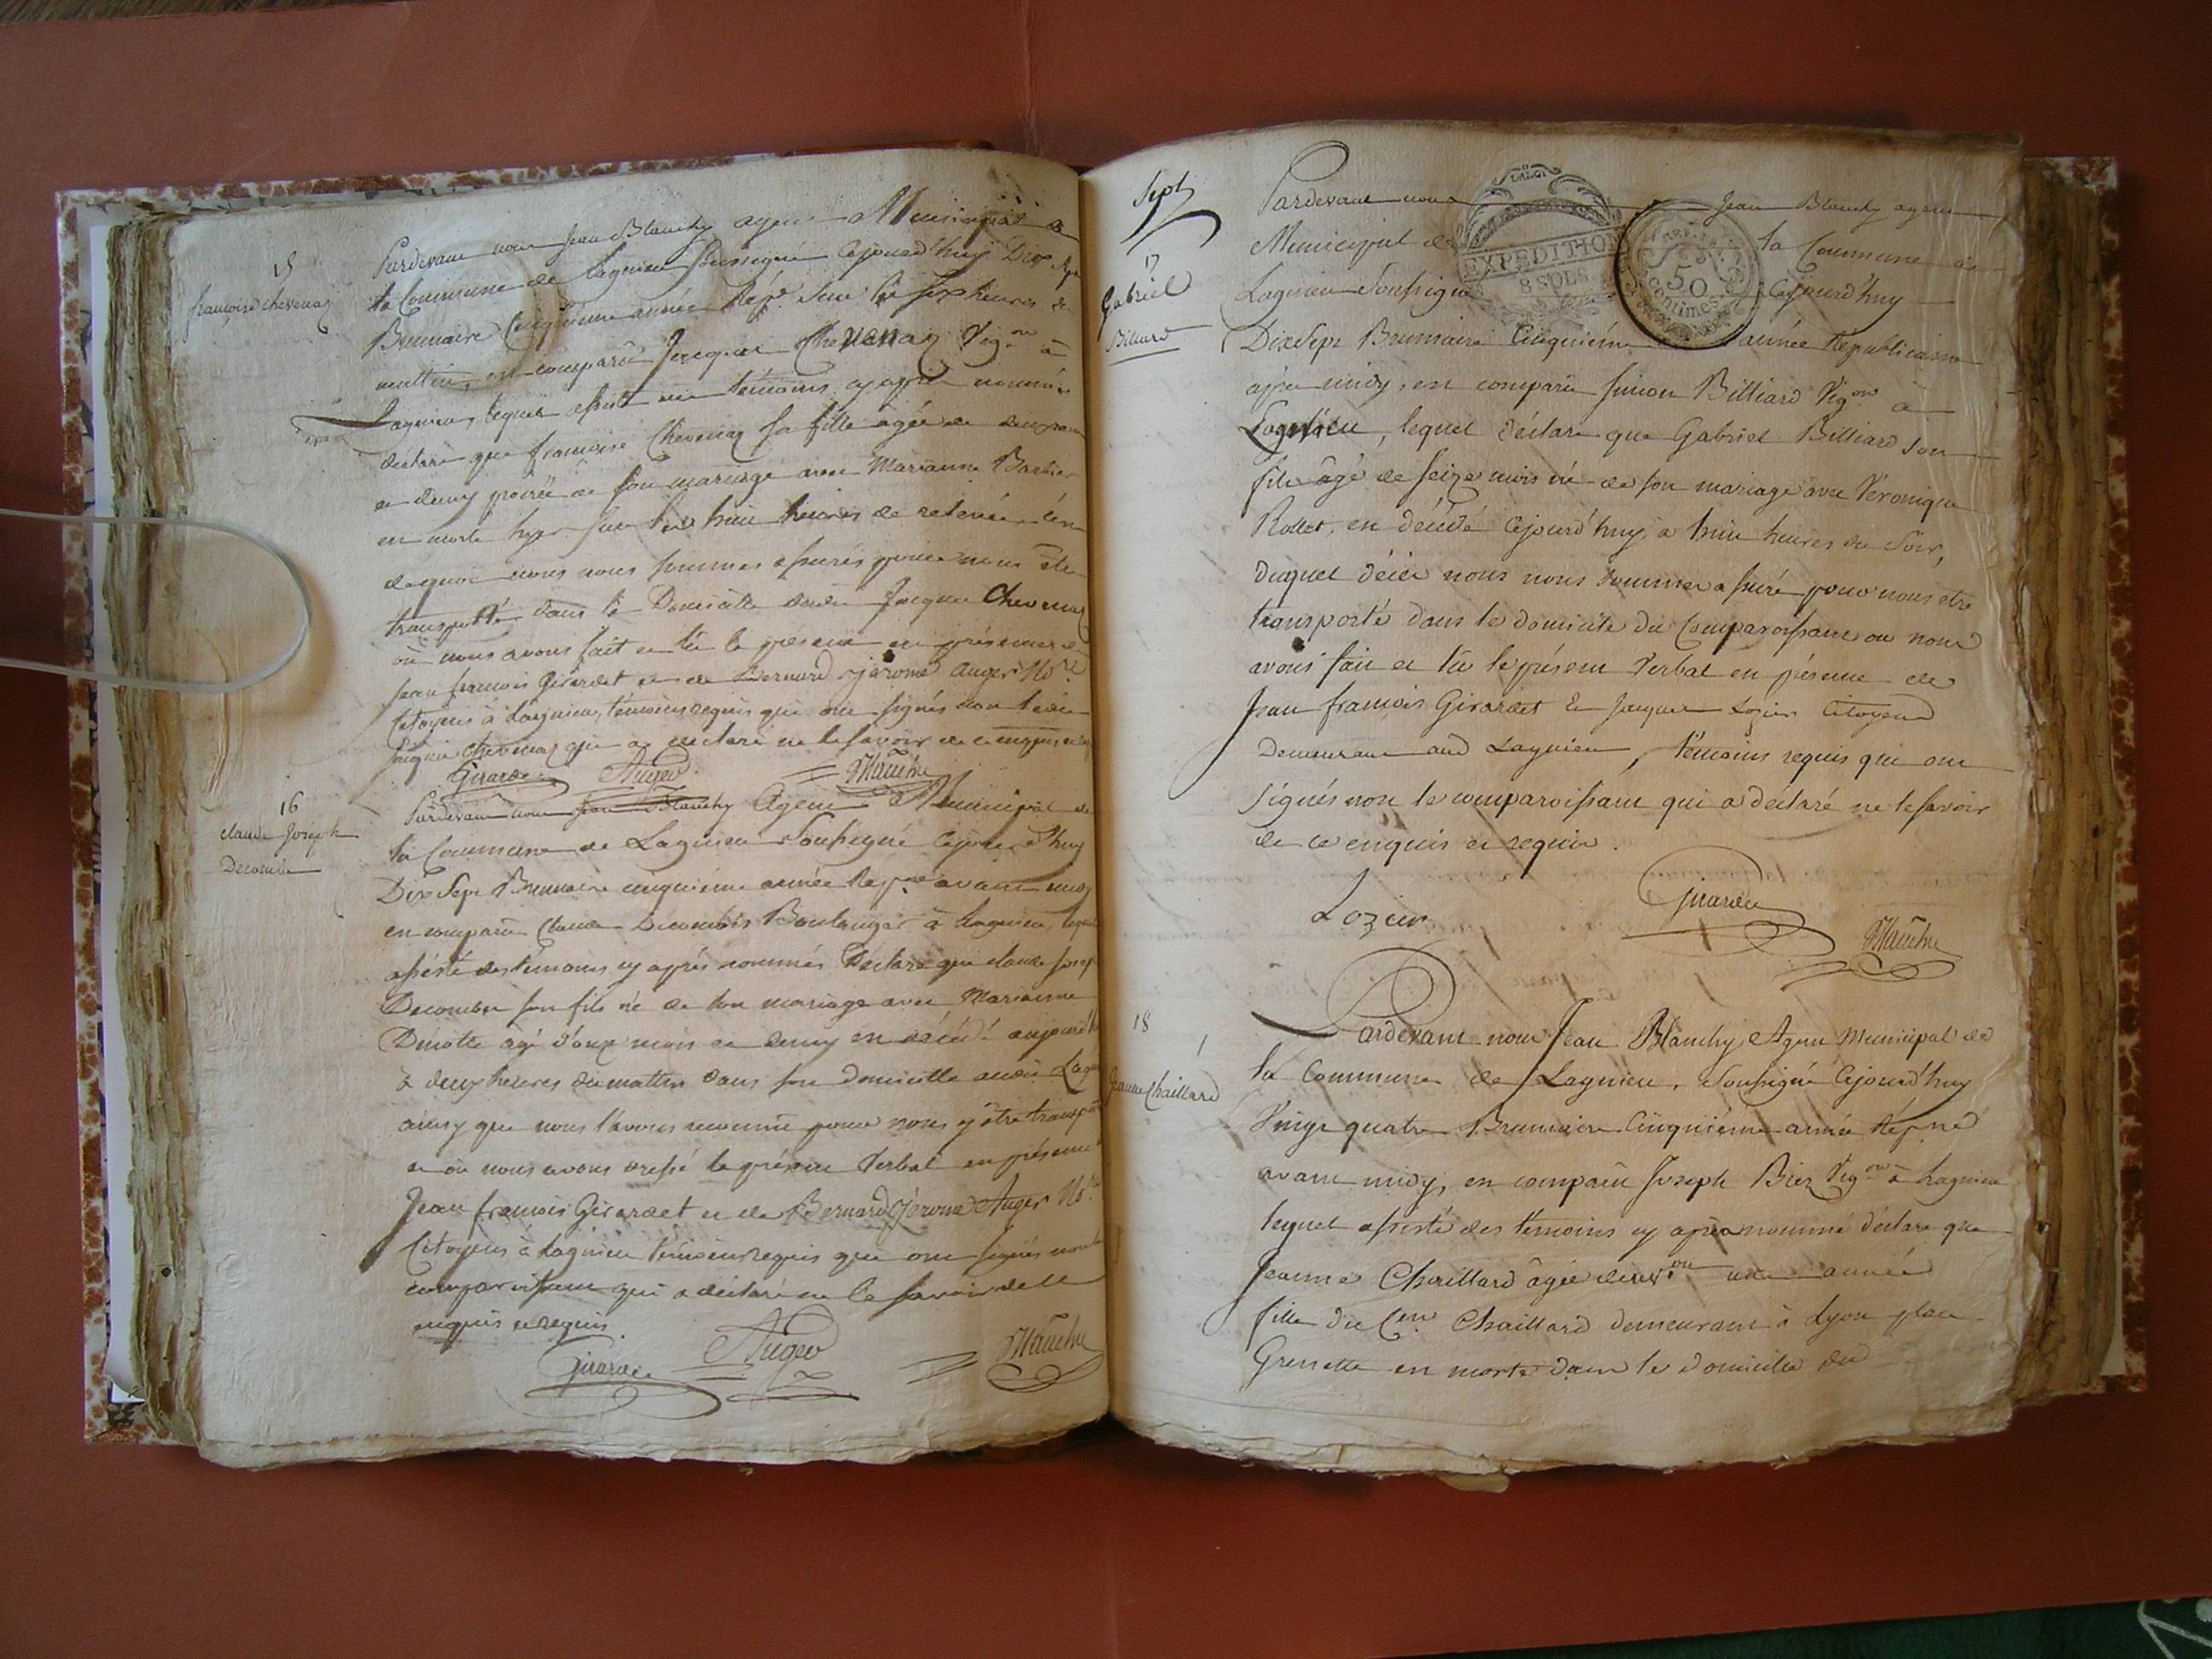 15
françoise chevenaz
Pardevant nous Jean Blanchy agent Municipal de
la Commune de Lagnieu soussigné Cejourd'huy Dix Sept
Brumaire Cinquieme année Rep.e sur les sept heures du
mattin, est comparu Jacques Chevenaz Vig.on à
Lagnieu, lequel assisté des témoins cy après nommés
declare que francoise Chevenaz sa fille agée de deux ans
et demy procréé de son mariage avec Marianne Barbier
est morte hyer sur les huit heures de relevée, ce
dequoi nous nous sommes assurés pour nous etre
transporté dans le Domicille dudit Jacques Chevenaz
où nous avons fait et lû le présent en présence de
Jean francois Girardet et de Bernard Jérome Auger No.re
Citoyens à Lagnieu, témoins requis qui ont signés non ledit
Jacques Chevenaz qui a declaré ne le savoir de ce enquis et
Girardet Auger Blanchy
16
claude Joseph
Decombe
Pardevant nous Jean Blanchy Agent Municipal de
la Commune de Lagnieu Soussigné Cejourd'huy
Dix Sept Brumaire cinquieme année Rep.ne avant midy
est comparu Claude Decombes Boulanger à Lagnieu, lequel
assisté des témoins cy après nommés Declare que claude Joseph
Decombe son fils né de son mariage avec Marianne
agé d'onze mois et demy est décédé aujourd'h
à deux heures du mattin dans son domicille audit Lagn
ainsy que nous l'avons reconnu pour nous y être transpor
et où nous avons dressé le présent Verbal en présence
Jean francois Girardet et de Bernard Jérome Auger No.re
Citoyens à Lagnieu témoins requis qui ont signés non le
comparoissant qui a déclaré ne le savoir de ce
enquis et requis.
Girardet Auger Blanchy
Sept
17
Gabriel
Billiard
LA LOI
EXPEDITION
8 SOLS
50
centimes
Pardevant nous Jean Blanchy agent
Municipal de la Commune de
Lagnieu Soussigné Cejourd'huy
Dix Sept Brumaire Cinquiéme année Républicaine
après midy, est comparu Simon Billiard Vig.on à
Lagnieu, lequel déclare que Gabriel Billiard son
fils âgé de seize mois né de son mariage avec Véronique
Rollet, est décédé Cejourd'huy à huit heures du Soir,
duquel décès nous nous sommes assuré pour nous etre
transporté dans le domicile du Comparoissant ou nous
avons fait et lû le présent Verbal en présence de
Jean françois Girardet Et Jacques Lozier Citoyens
Demeurant aud Lagnieu, témoins requis qui ont
signés non le comparoissant qui a déclaré ne le savoir
de ce enquis et requis.
Lozier Girardet Blanchy
18
Jeanne Chaillard
Pardevant nous Jean Blanchy Agent Municipal de
la Commune de Lagnieu, Soussigné Cejourd'huy
Vingt quatre Brumaire Cinquiéme année Rép.ne
avant midy, est comparu Joseph Vig.on à Lagnieu
lequel assisté des témoins cy après nommé déclare que
Jeanne Chaillard âgée d'env.on une année
fille du C.en Chaillard demeurant à Lyon place
Grenette est morte dans le domicile du